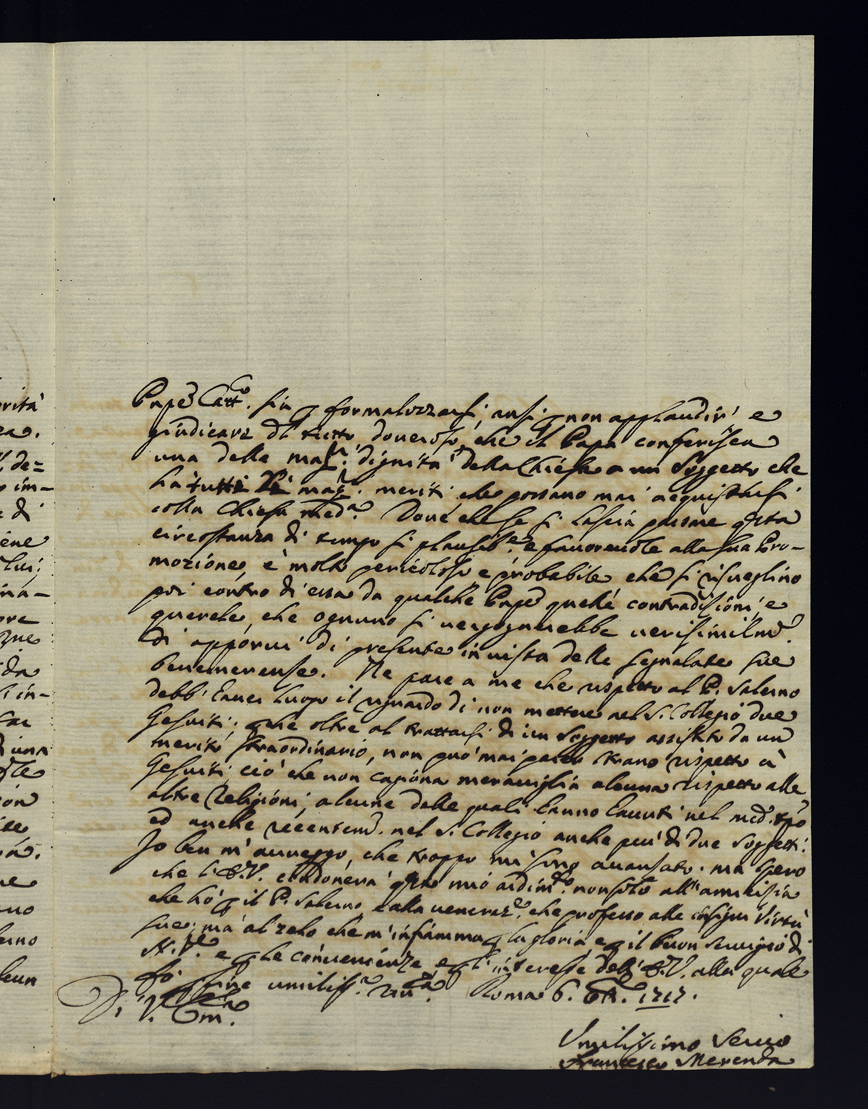 rità
ea.
de=
im-
e di
iene
lui;
ina-
ore
zne
da
in-
far
di una
ion
ne
uno
erno
leun
Pape Catt.co sia p formalizzarsi, ansi p non applaudir' e
giudicare del tutto doveroso, che il Papa conferisca
una delle mag.ri dignità della Chiesa a un Soggetto che
ha tutti li mag.ri meriti che possano mai acquistarsi
colla Chiesa med.a Dove che se si lascia passare qsta
circostanza di tempo sì plausib.e e favorevole alla sua Pro-
mozione, è molto pericoloso e probabile che si risveglino
poi contro di essa da qualche Pape quelle contradisioni e
querele, che ognuno si vergognarebbe verisimilm.e
di apporvi di presente in vista delle segnalate sue
benemerense. Ne pare a me che rispetto al P. Salerno
debb' haver luogo il riguardo di non mettere nel S. Collegio due
Gesuiti; p che oltre al trattarsi di un Soggetto assistito da un
merito straordinario, non può mai parer strano rispetto a'
Gesuiti ciò che non cagiona meraviglia alcuna rispetto alle
altre Religioni, alcune delle quali hanno havuti nel med.o tpo
ed anche recentem.e nel S. Collegio anche più di due Soggetti.
Io ben m'avveggo, che troppo mi sono avansato; ma spero
che l'E.V. condonerà qsto mio ardim.to non solo all'amicisia
che hò p il P. Salerno e alla veneraz.e che professo alle insigni virtù
sue; ma al zelo che m'infiamma p la gloria e p il buon servigio di
N.S.re e p le convenienze, e p l'interesse dell'E.V. alla quale
fò p fine umiliss.a riv.a Roma 6. 1717.
D. V. Em.a
Umilissimo Servo
Francesco Merenda